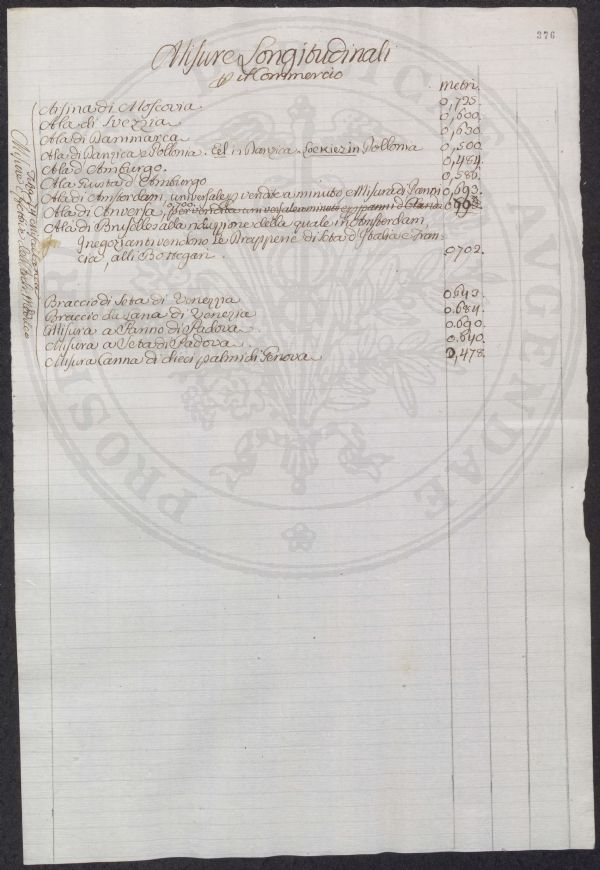 376
Misure Longitudinali
p il Commercio
metri.
Arsina di Moscovia 0,725.
Ala di Svezzia 0,600.
Ala di Danimarca 0,630
Ala di Danzica e Pollonia. Eel in Danzica. in Pollonia 0,500
Ala d'Amburgo. 0,484.
Ala Giusta d'Amburgo 0,586.
Ala di Amsterdam, universale p vendite a minuto e Misura di Panni 0,690.
Ala di Anversa, 0,700. per vendita universale a minuto e p panni d'Olanda
Ala di Bruselles alla riduzione della quale in Amsterdam,
i negozianti vendono le Drapperie di Seta d'Italia e Fran-
cia, alli Bottegari. 0,702.
Braccio di Seta di Venezzia 0.643.
Braccio da Lana di Venezia 0.684.
Misura a Panno di Padova 0.690.
Misura a Seta di Padova 0.640.
Misura Canna di dieci palmi di Genova 0,478.
PROSPERI AUGENDAE